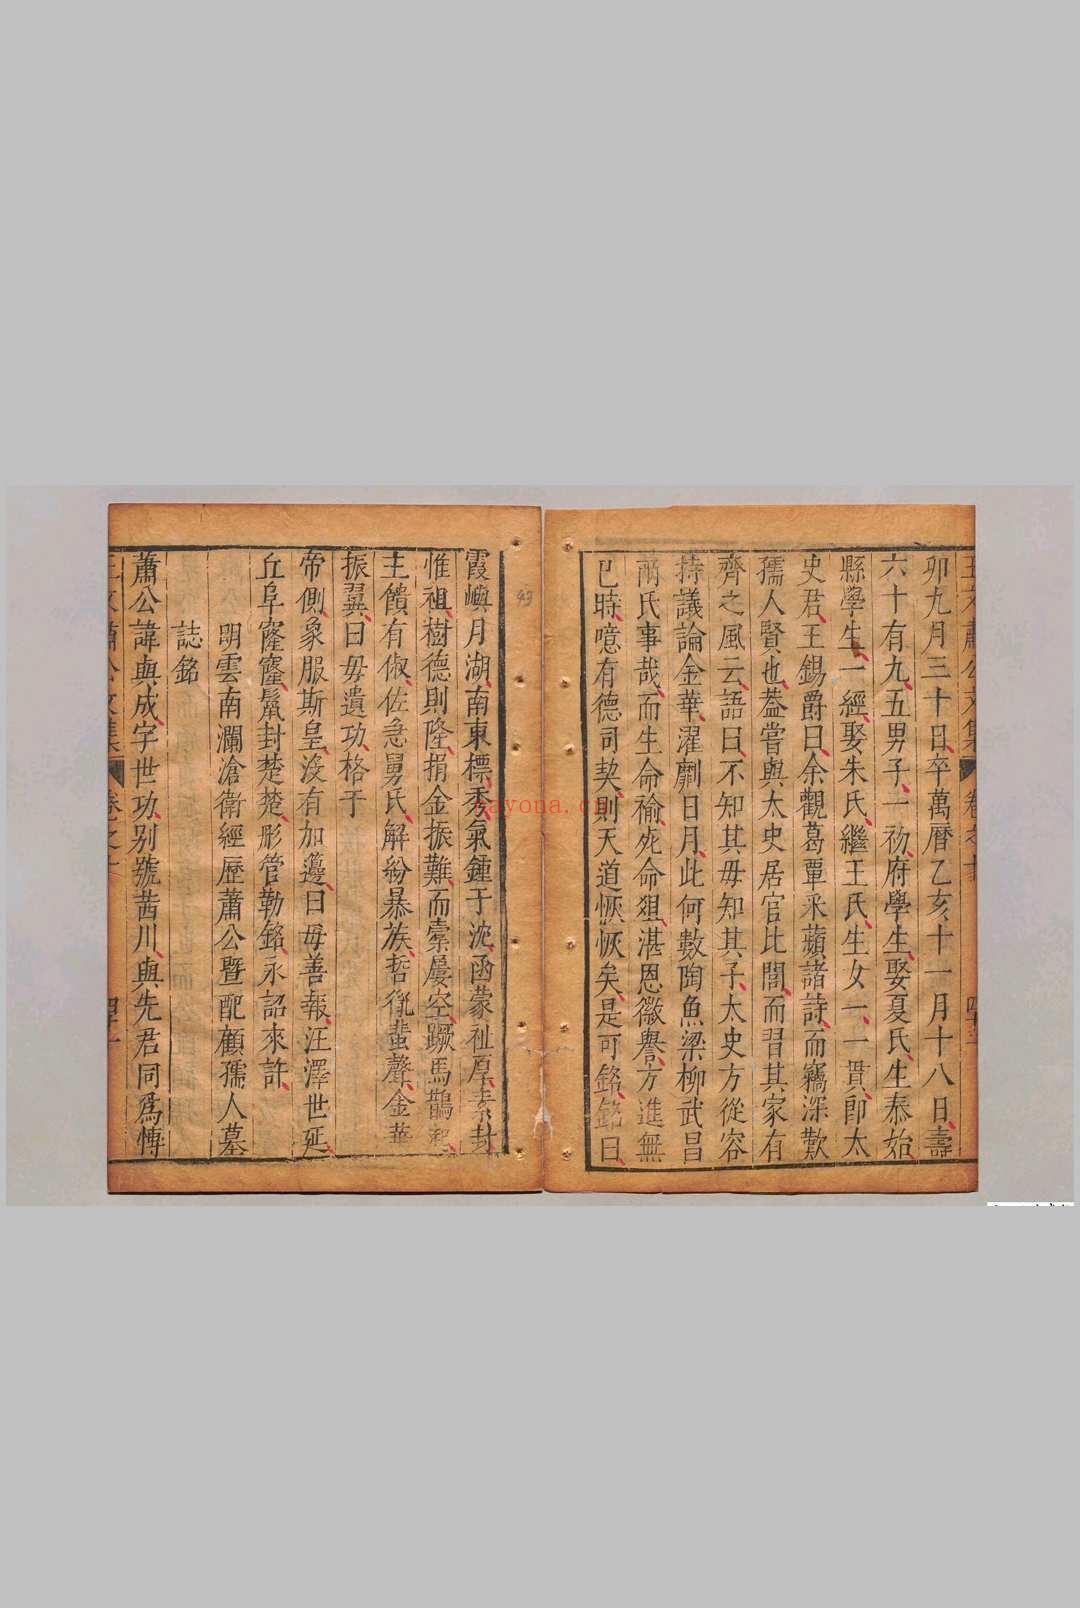 卯九月三十日卒萬曆乙亥十一月十八日壽
六十有九五男子一初府學生娶夏氏生泰始
縣學生一經娶朱氏繼王氏生女一一貫卽太
史君王錫爵曰余觀葛覃采蘋諸詩而竊深歎
孺人賢也葢嘗與太史居官比閭而習其家有
齊之風云語曰不知其母知其子太史方從容
持議論金華濯劘日月此何數陶魚梁柳武昌
兩氏事哉而生命褕死命爼湛恩徽譽方進無
已時噫有德司契則天道恢恢矣是可銘銘曰
霞嶼月湖南東標秀氣鍾于沈函蒙祉厚素封
惟祖樹德則隆捐金振難而橐屢空蹶馬鵲
主饋有俶佐急舅氏解紛暴族哲胤蜚聲金華
振翼曰毋遺功格于
帝側象服斯皇沒有加邊曰母善報汪澤世延
丘阜窿窿鬣封楚楚彤管勒銘永詔來許
明雲南瀾滄衛經歷蕭公暨配顧孺人墓
誌銘
蕭公諱與成字世功别號茜川與先君同爲愽
王文肅公文集
卷之十